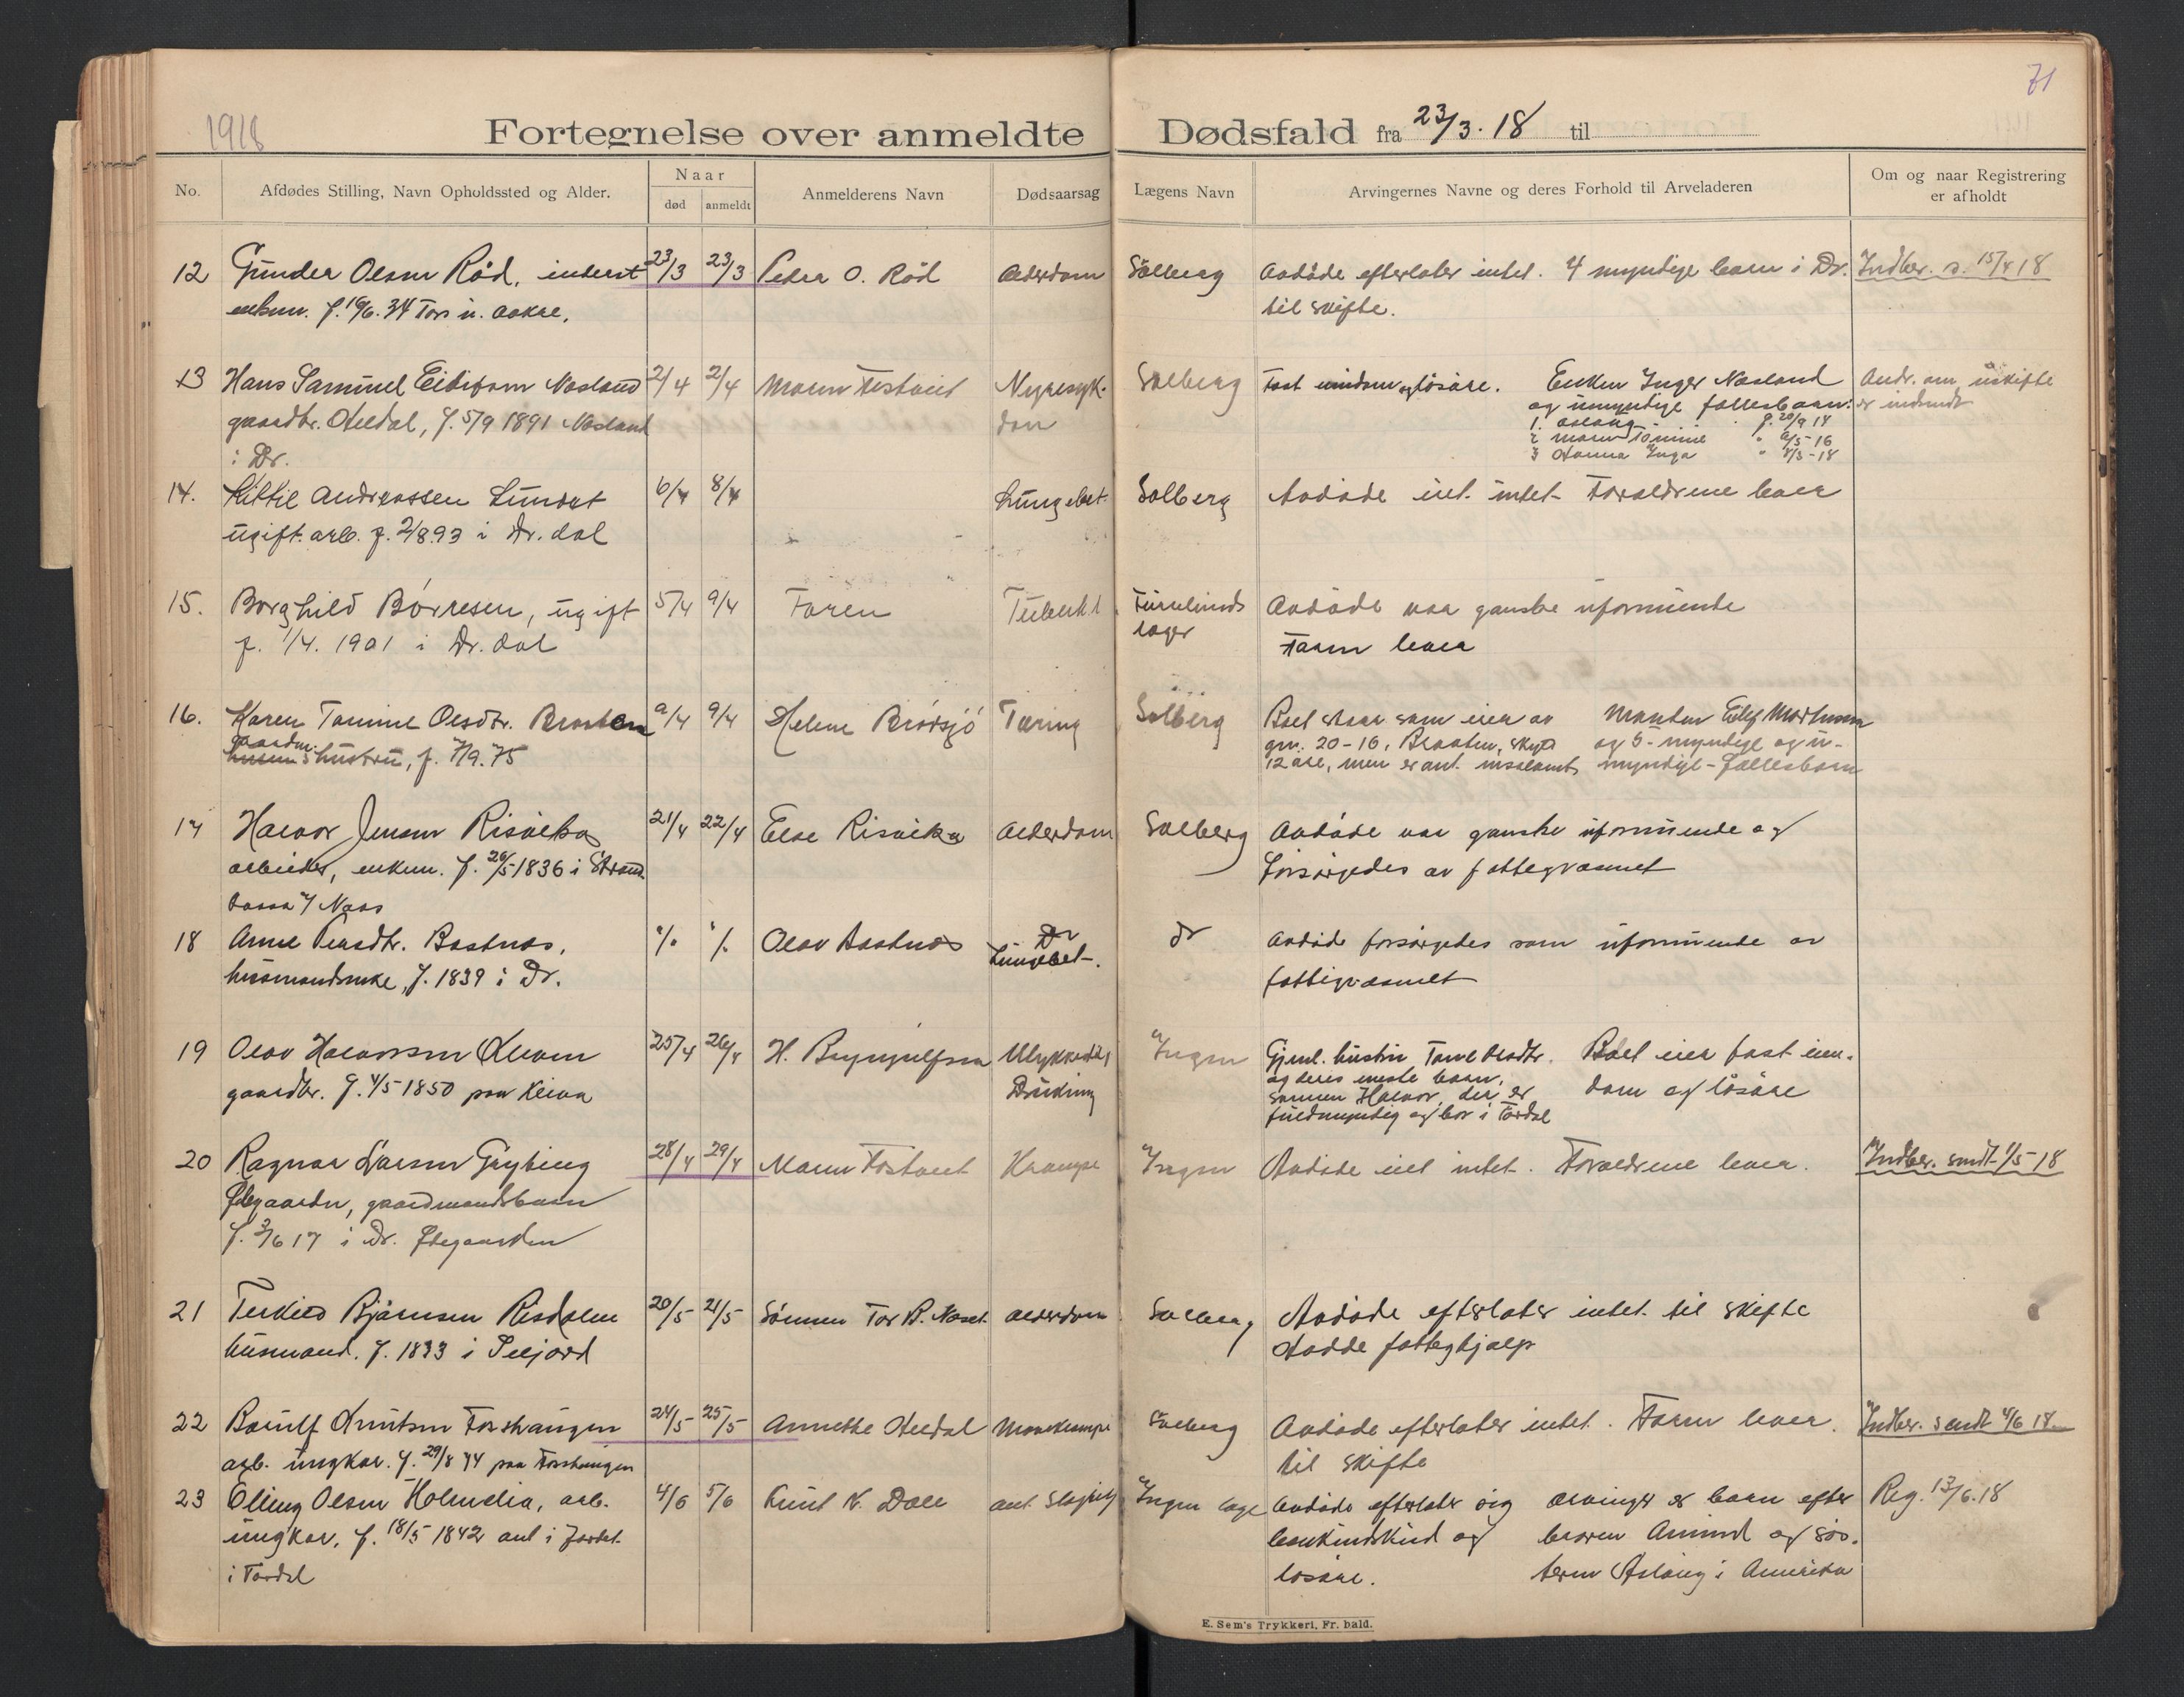 1918
71
Fortegnelse over anmeldte Dødsfald fra 23/3. 18 til
No.
Afdødes Stilling, Navn Opholdssted og Alder.
Naar
død
anmeldt
Anmelderens Navn
Dødsaarsag
Lægens Navn
Arvingernes Navne og deres Forhold til Arveladeren
Om og naar Registrering
er afholdt
12 Gunder Olsen Rød, inderst 23/3 23/3 Petra O. Rød Alderdom Solberg Avdøde efterlater intet. 4 myndige barn i Dr. Indber. s. 15/4 18
enkem. f. 16/6. 34 til skifte.
13 Hans Samuel Næsland 2/4 2/4 Maren Tostveit Nyresyk- Solberg Fast eiendom og løsøre. Enken Inger Næsland Andr. om uskifte
gaardbr. f. 5/9 1891 Næsland dom og umyndige fællesbarn: er indsendt
i Dr. 1. Aslaug f. 20/9 14
2 Maren Tomine " 2/5-16
3 Hanna Inga " 8/3-18
14. Kittil Andreassen Lundet 6/4 8/4 Lungebet. Solberg Avdøde eiet intet. Forældrene lever
ugift arb. f. 2/8 93 i Dr.dal
15. Borghild Børresen, ugift 5/4 9/4 Faren Tuberkl. Avdøde var ganske uformuende
f. 1/4. 1901 i Dr.dal Faren lever
16. Karen Tomine Olsdtr. Braaten 9/4 9/4 Helene Brødsjø Tæring Solberg Boet staar som eier av Manden Eilef Mortensen
gaardm. hustru, f. 7/9. 75 grn. 20-16, Braaten, skyld og 5 myndige og u-
12 øre, men er ant. insolvent myndige fællesbarn
17 Halvor Jensen Risvika 21/4 22/4 Else Risvika Alderdom Solberg Avdøde var ganske uformuende og
arbeider, enkem. f. 26/5 1836 i forsørgedes av fattigvæsenet
18 Anne Bostnes, "/" "/" Olav Bostnes Lungebet. dr Avdøde forsørgedes som uformuende av
husmandsenke, f. 1839 i Dr. fattigvæsenet
19 Olav Halvorsen Kleiva 25/4 26/4 H. Brynjulfsen Ulykkestilf. Ingen Gjenl. hustru Tone Olsdtr. Boet eier fast eien-
gaardbr. f. 4/5 1850 paa Kleiva Drukning og deres eneste barn, dom og løsøre
sønnen Halvor, der er
fuldmyndig og bor i Tørdal
20 Ragnar Larsen Gryting 28/4 29/4 Maren Tostveit Krampe Ingen Avdøde eiet intet. Forældrene lever. Indber. sendt 1/5-18
Øygaarden, gaardmandsbarn
f. 3/6 17 i Dr. Øygaarden
21 Terkild Bjørnsen Risdalen 20/5 21/5 Sønnen Tor B. Naset Alderdom Solberg Avdøde efterlater intet til skifte
husmand. f. 1833 i Seljord Hadde fattighjælp
22 Knutsen Forshaugen 24/5 25/5 Annette Solberg Avdøde efterlater intet. Faren lever. Indber. sendt 4/6 18
arb. ungkar. f. 29/8 94 paa Forshaugen til skifte
23 Elling Olsen Holmelia, arb. 4/6 5/6 Knut N. Dale ant. Slag Ingen læge Avdøde efterlater sig arvinger er barn efter Reg. 13/6.18
ungkar, f. 18/5 1842 ant i bankindskud og broren Amund og søs-
i Tørdal løsøre. teren Aslaug i Amerika
E. Sem's Trykkeri, Fr. hald.